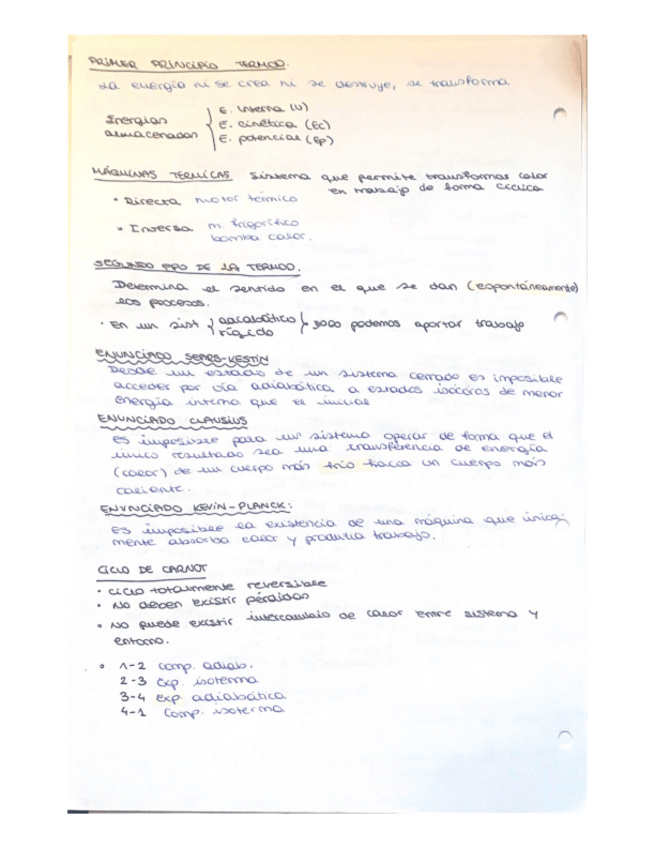 PRIMER PRINCIPIO TERMOD.
La energía ni se crea ni se destruye, se transforma
Energías almacenadas { E. interna (U)
E. cinética (Ec)
E. potencial (Ep)
MÁQUINAS TERMICAS Sistema que permite transformas calor
en trabajo de forma cíclica
• Directa motor térmico
• Inversa m. frigorífico
bomba calor.
SEGUNDO PPO DE LA TERMOD.
Determina el sentido en el que se dan (espontáneamente)
los procesos.
• En un sist { adiabático
rígido } solo podemos aportar trabajo
ENUNCIADO SEARS-KESTIN
Desde un estado de un sistema cerrado es imposible
acceder por vía adiabática a estados isócoros de menor
energía interna que el inicial
ENUNCIADO CLAUSIUS
Es imposible para un sistema operar de forma que el
único resultado sea una transferencia de energía
(calor) de un cuerpo más frío hacia un cuerpo más
caliente.
ENUNCIADO KEVIN-PLANCK:
Es imposible la existencia de una máquina que única-
mente absorba calor y produzca trabajo.
CICLO DE CARNOT
• Ciclo totalmente reversible
• No deben existir pérdidas
• No puede existir intercambio de calor entre sistema y
entorno.
• 1-2 comp. adiab.
2-3 exp. isoterma
3-4 exp. adiabática
4-1 Comp. isoterma